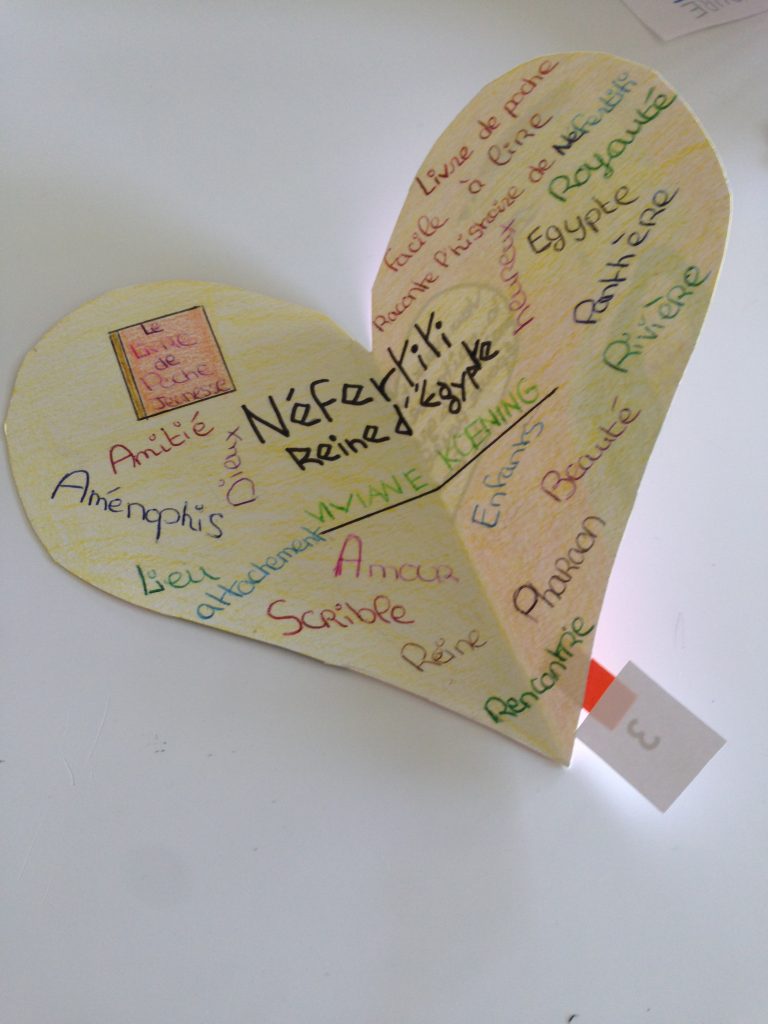 Le
Livre
de
Poche
Jeunesse
Amitié
Dieux
Aménophis
Lieu
attachement
Néfertiti
Reine d'Égypte
VIVIANE KOENING
Amour
Scrible
Reine
Livre de poche
facile à lire
Raconte l'histoire de Néfertiti
Royauté
heureux
Egypte
Panthère
Rivière
Beauté
Enfants
Pharaon
Rencontre
3